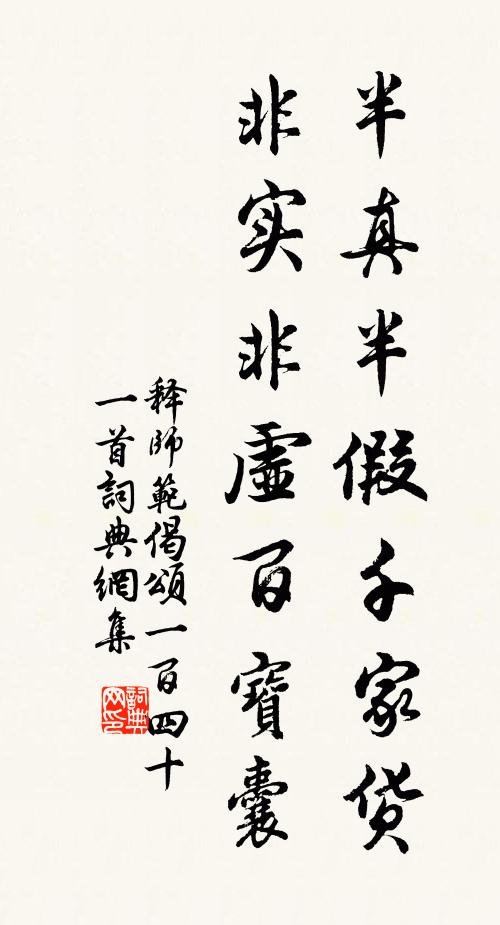 半真半假千家货
非实非虚百寶囊
释師範偈頌一百四十
一首詞典網集
詞典网印